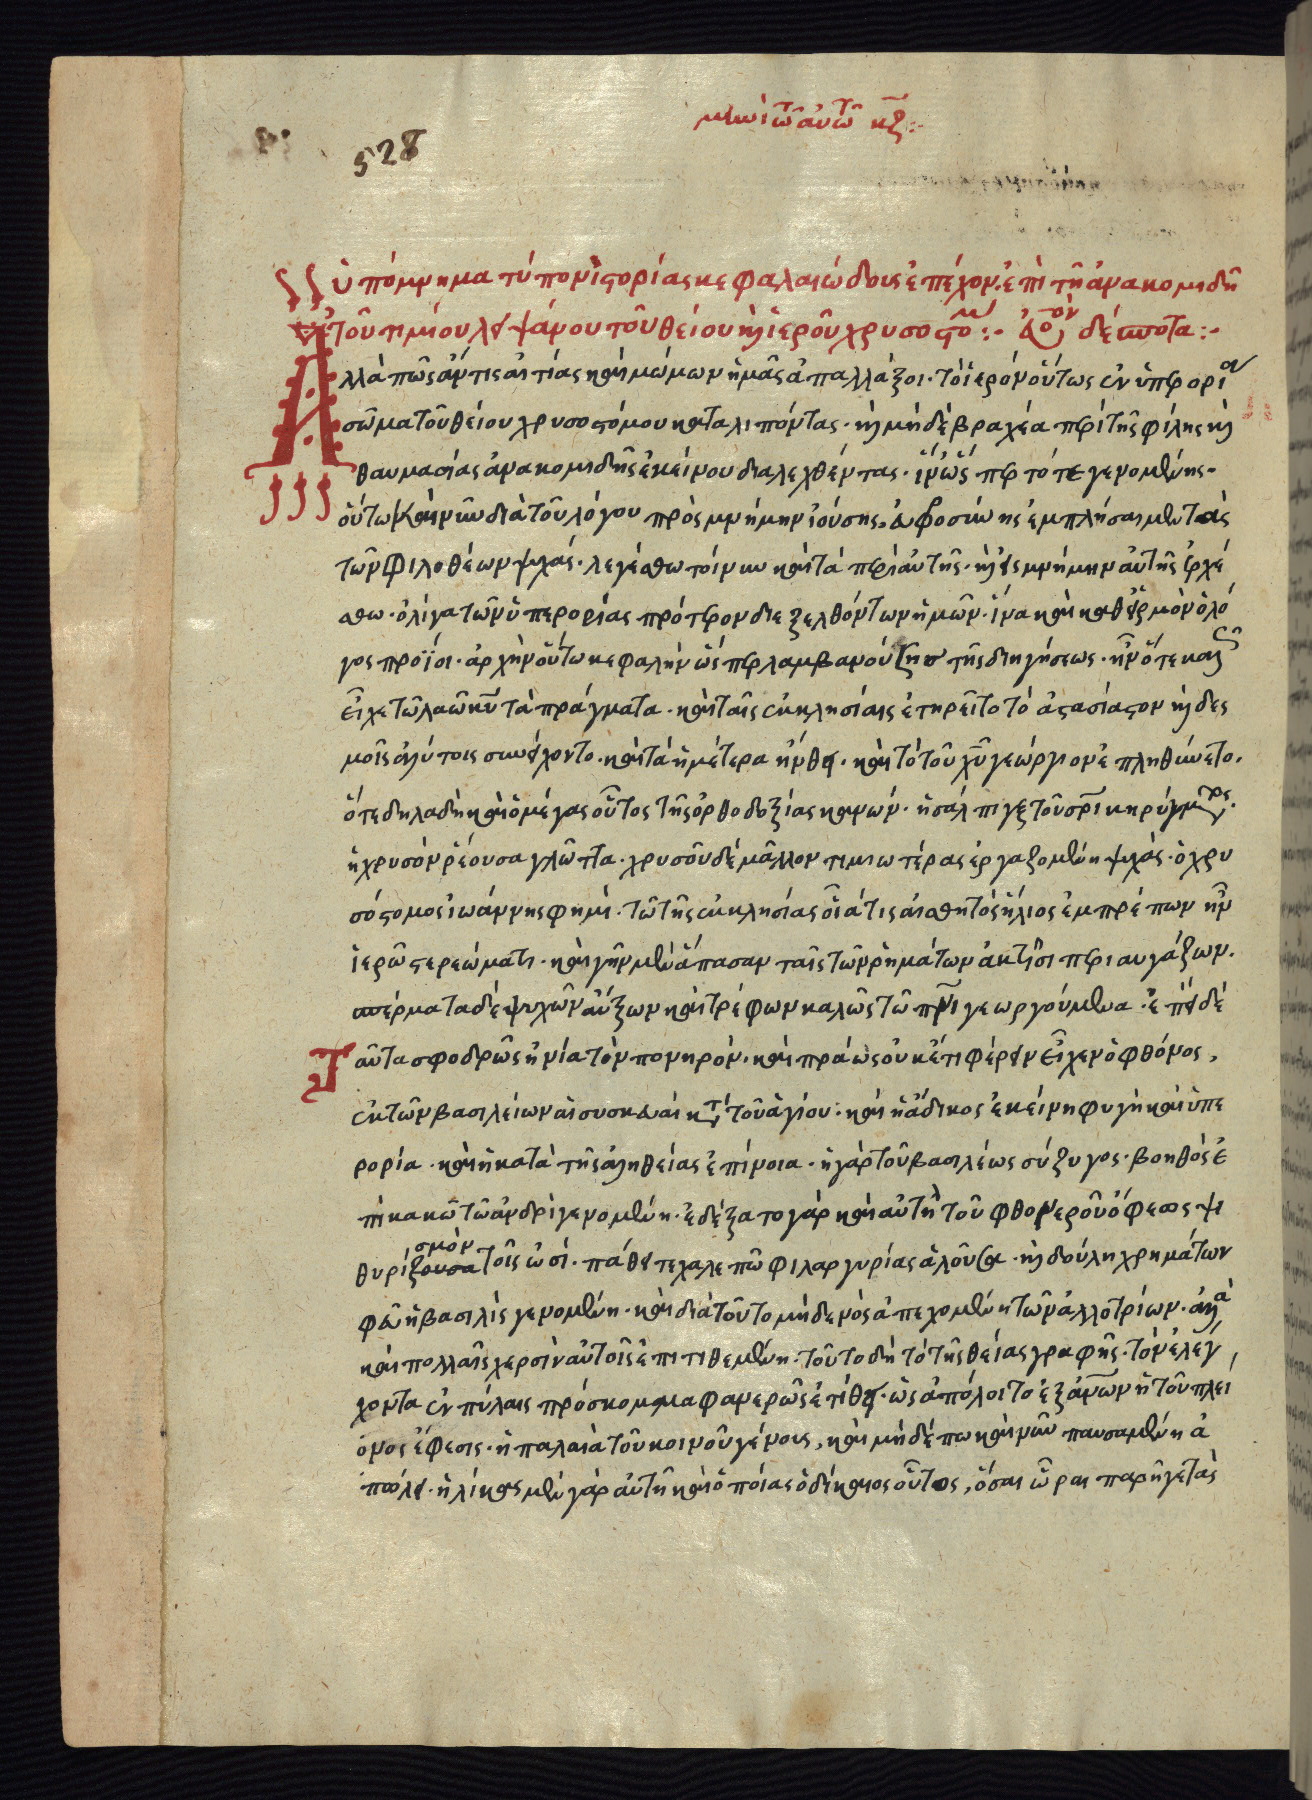 μηνὶ τῶ αὐτῶ κζ:-
528
ὑπόμνημα τύπον ἱστορίας κεφαλαιώδους ἐπέχον. ἐπὶ τῆ ἀνακομιδῆ
τοῦ τιμίου λειψάνου τοῦ θείου καὶ ἱεροῦ χρυσοστόμ:- δέσποτα:-
Ἀλλὰ πῶς ἄν τις αἰτίας καὶ μώμων ἡμᾶς ἀπαλλάξοι. τὸ ἱερὸν οὕτως ἐν ὑπερορία
σῶμα τοῦ θείου χρυσοστόμου καταλιπόντας. καὶ μὴ δὲ βραχέα περὶ τῆς φίλης καὶ
θαυμασίας ἀνακομιδῆς ἐκείνου διαλεχθέντας. ἵν' ὥσπερ τότε γενομένης.
οὕτω καὶ νῦν διὰ τοῦ λόγου πρὸς μνήμην ἰούσης. εὐφροσύνης ἐμπλήσαιμεν τὰς
τῶν φιλοθέων ψυχάς. λεγέσθω τοίνυν καὶ τὰ περὶ αὐτῆς. καὶ εἰς μνήμην αὐτῆς ἐρχέ
σθω. ὀλίγα τῶν ὑπερορίας πρότερον διεξελθόντων ἡμῶν. ἵνα καὶ καθ' εἱρμὸν ὁ λό
γος προΐοι. ἀρχὴν οὕτω κεφαλὴν ὥσπερ λαμβανούσης τῆς διηγήσεως. ἦν ὅτε καλῶς
εἶχε τῶ λαῶ κυ τὰ πράγματα. καὶ ταῖς ἐκκλησίαις ἐτηρεῖτο τὸ ἀστασίαστον καὶ δεσ
μοῖς ἀλύτοις συνείχοντο. καὶ τὰ ἡμέτερα ἤνθει. καὶ τὸ τοῦ χυ γεώργιον ἐπληθύνετο.
ὅτε δηλαδὴ καὶ ὁ μέγας οὗτος τῆς ὀρθοδοξίας κανών. ἡ σάλπιγξ τοῦ σρι κηρύγματος.
ἡ χρυσὸν ῥέουσα γλῶττα. χρυσοῦ δὲ μᾶλλον τιμιωτέρας ἐργαζομένη ψυχάς. ὁ χρυ
σόστομος ἰωάννης φημὶ. τῶ τῆς ἐκκλησίας οἷά τις αἰσθητὸς ἥλιος ἐμπρέπων ἦν
ἱερῶ στερεώματι. καὶ γῆν μὲν ἅπασαν ταῖς τῶν ῥημάτων ἀκτῖσι περιαυγάζων.
σπέρματα δὲ ψυχῶν αὔξων καὶ τρέφων καλῶς τῶ πνι γεωργούμενα. ἐπεὶ δὲ
Ταῦτα σφοδρῶς ἠνία τὸν πονηρόν. καὶ πράως οὐκέτι φέρειν εἶχεν ὁ φθόνος,
ἐκ τῶν βασιλείων αἱ συσκευαὶ κατὰ τοῦ ἁγίου. καὶ ἡ ἄδικος ἐκείνη φυγὴ καὶ ὑπε
ρορία. καὶ ἡ κατὰ τῆς ἀληθείας ἐπίνοια. ἡ γὰρ τοῦ βασιλέως σύζυγος. βοηθὸς ἐ
πὶ κακῶ τῶ ἀνδρὶ γενομένη. ἐδέξατο γὰρ καὶ αὐτὴ τοῦ φθονεροῦ ὄφεως ψι
θυρισμὸν τοῖς ὠσί. πάθει τε χαλεπῶ φιλαργυρίας ἁλοῦσα. καὶ δούλη χρημάτων
φεῦ ἡ βασιλὶς γενομένη. καὶ διὰ τοῦτο μηδενὸς ἀπεχομένη τῶν ἀλλοτρίων. ἀλλὰ
καὶ πολλαῖς χερσὶν αὐτοῖς ἐπιτιθεμένη. τοῦτο δὴ τὸ τῆς θείας γραφῆς. τὸν ἐλέγ
χοντα ἐν πύλαις πρόσκομμα φανερῶς ἐτίθει. ὡς ἀπόλοιτο ἐξ ἀνων ἡ τοῦ πλεί
ονος ἔφεσις. ἡ παλαιὰ τοῦ κοινοῦ γένους, καὶ μὴ δέπω καὶ νῦν παυσαμένη ἀ
πειλή. ἡλίκας μὲν γὰρ αὐτῆ καὶ ὁποίας ὁ δίκαιος οὗτος, ὅσαι ὧραι παρῆγε τὰς